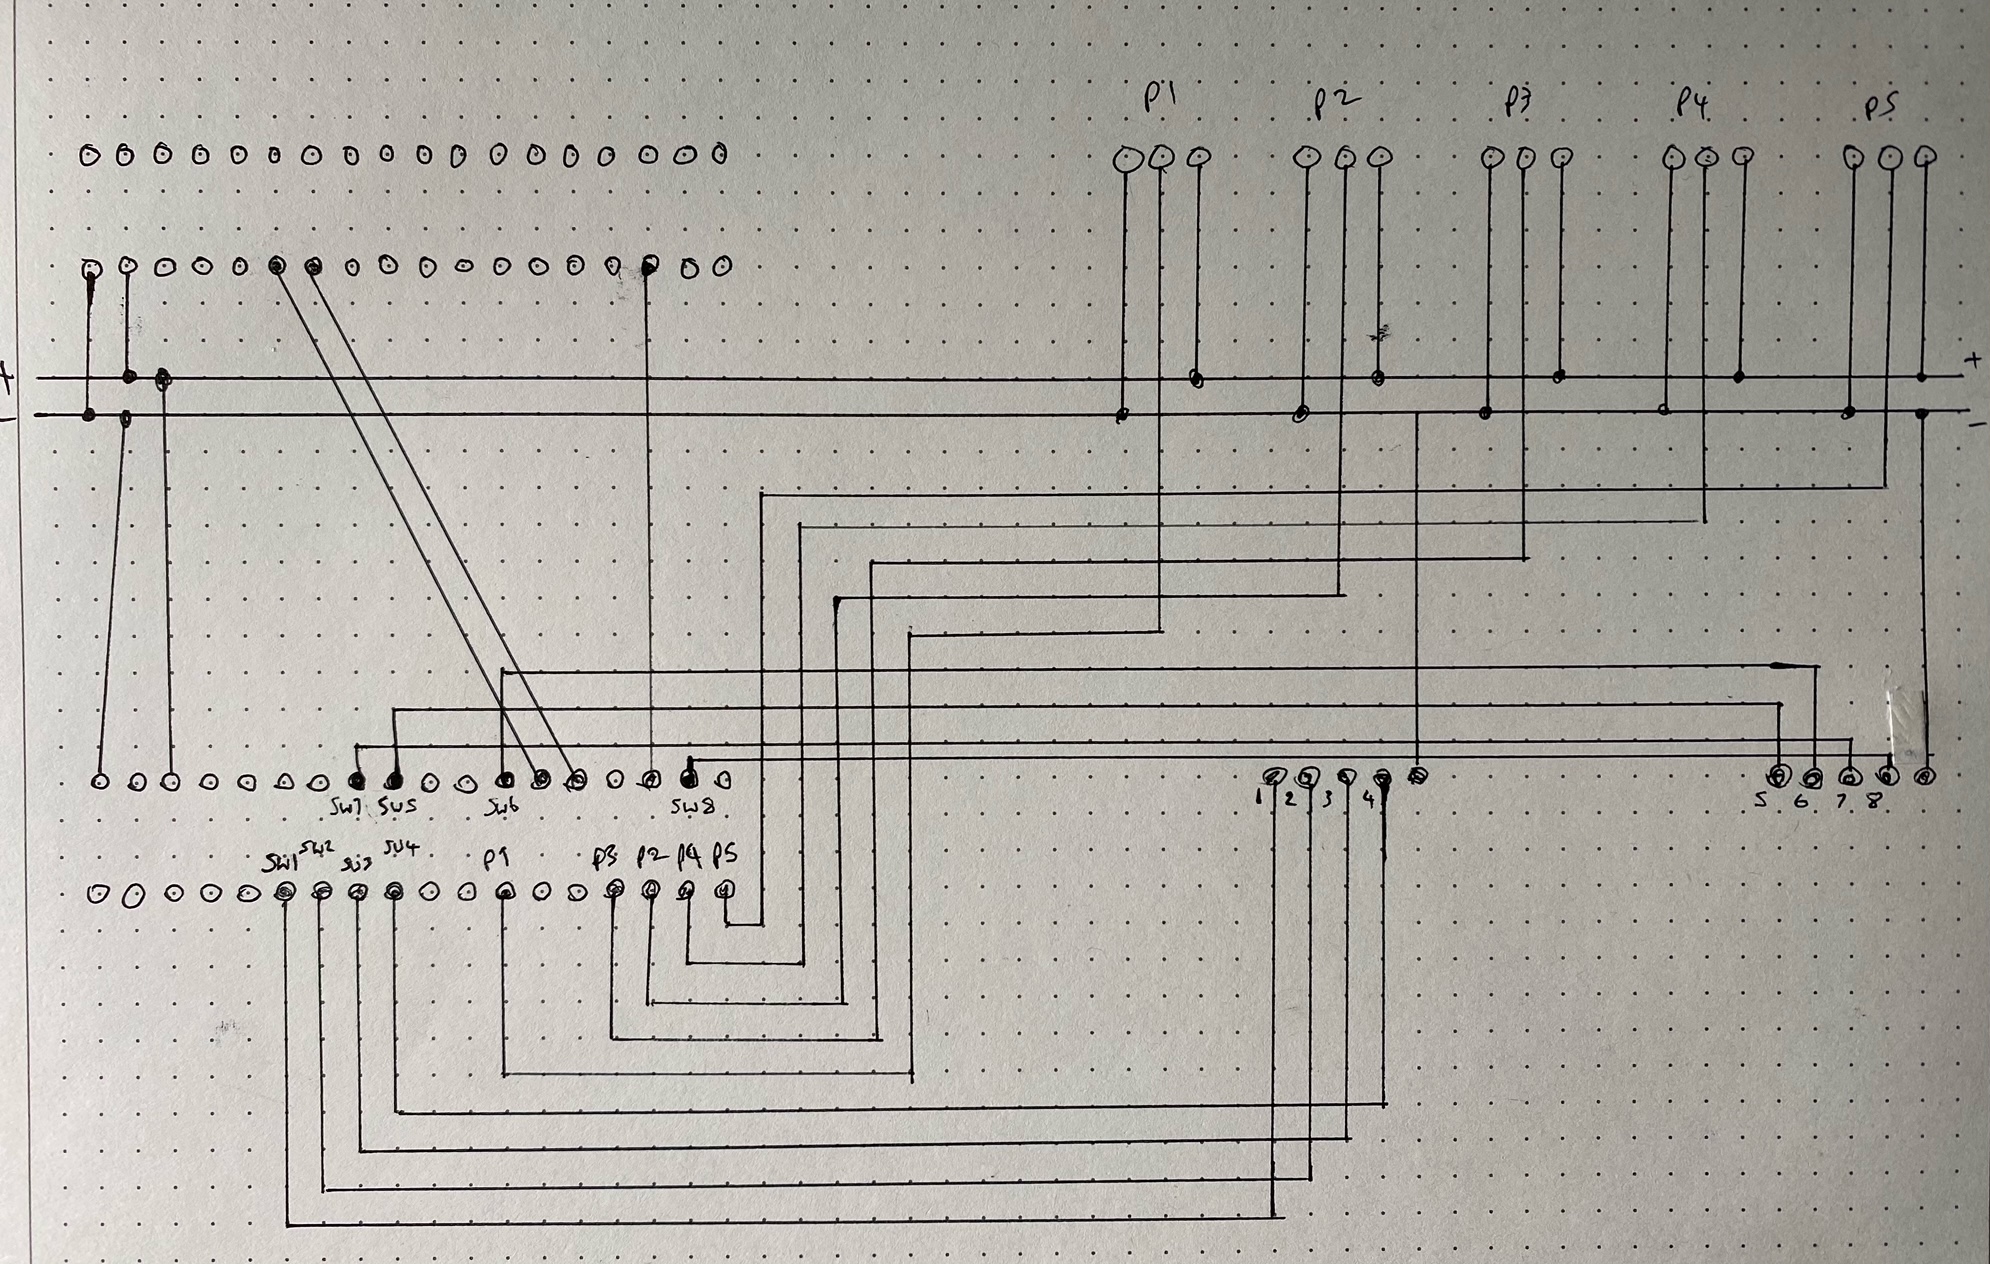 P1 P2 P3 P4 P5
+ +
- -
SW7 SW5 SW6 SW8
1 2 3 4 5 6 7 8
SW1 SW2 SW3 SW4 P1 P3 P2 P4 P5